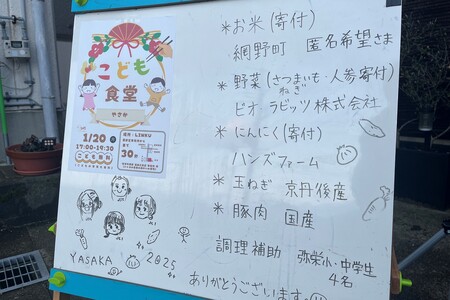 こども
食堂
やさか
1/20
17:00-19:30
場所：LINKU
30
*お米(寄付)
網野町 匿名希望さま
*野菜(さつまいも・人参寄付)
ねぎ
ビオ・ラビッツ株式会社
*にんにく(寄付)
ハンズファーム
*玉ねぎ 京丹後産
*豚肉 国産
調理補助 弥栄小・中学生
4名
ありがとうございます。
YASAKA 2025